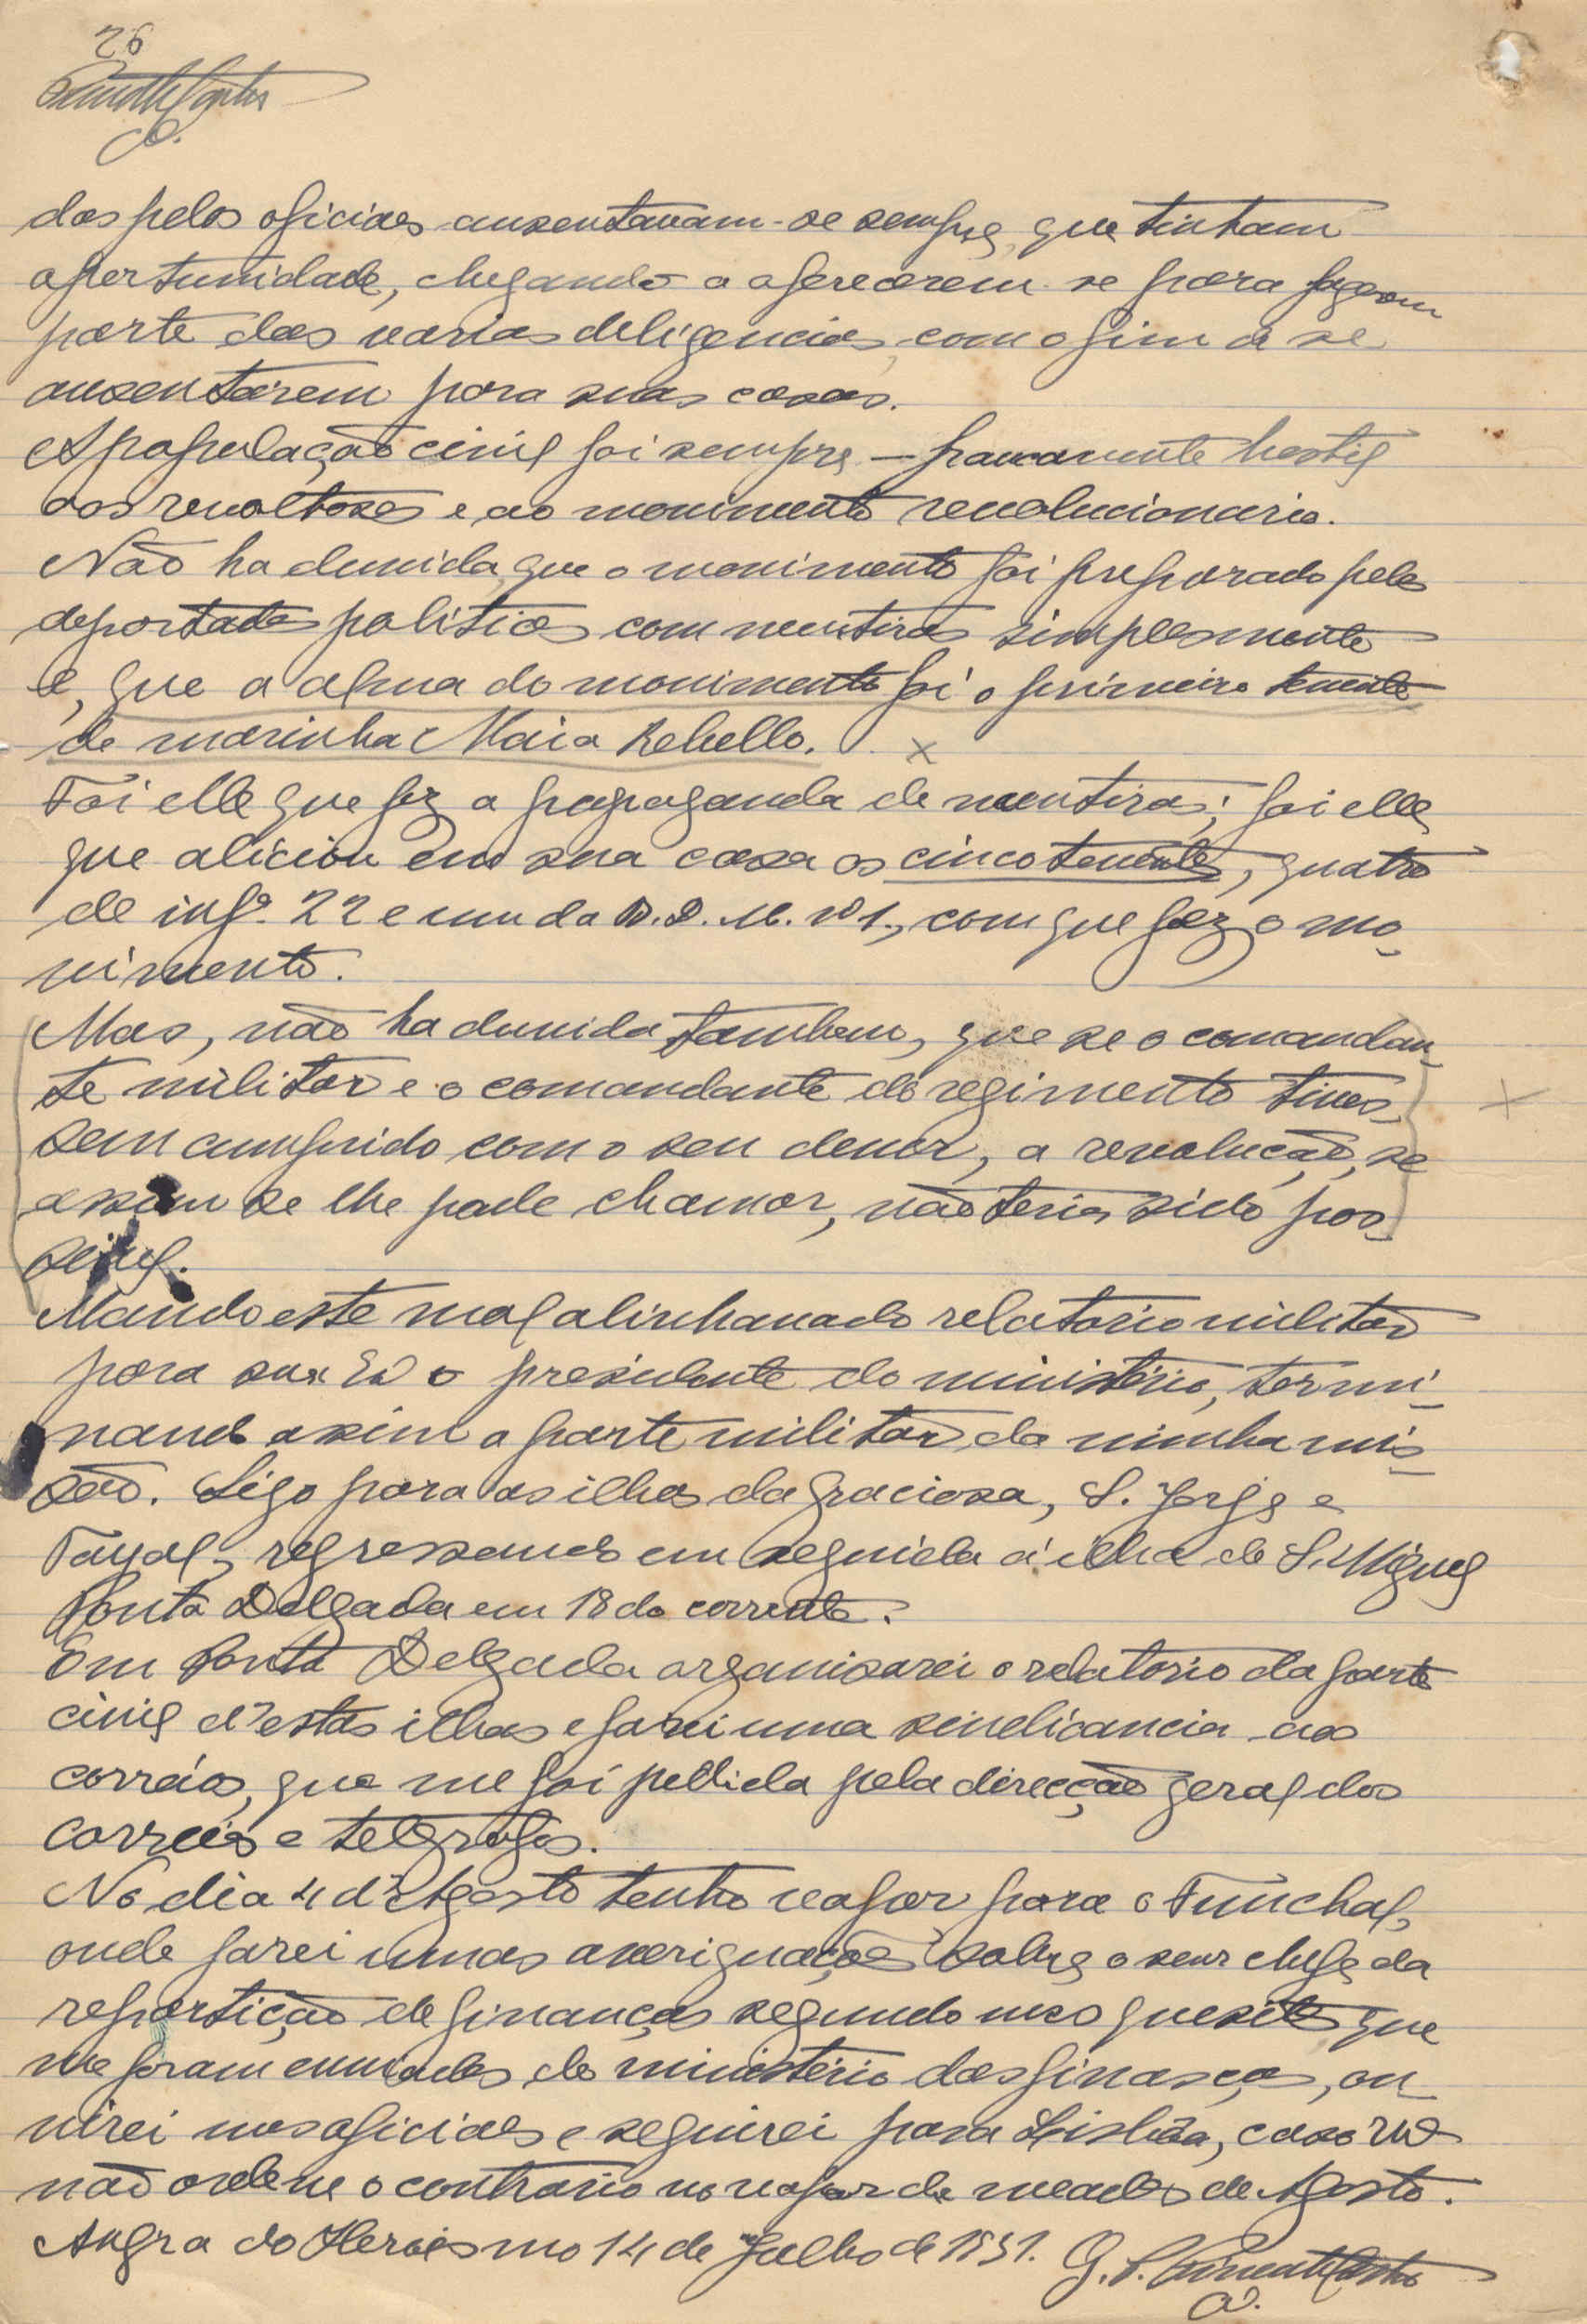 26
dos pelos oficiaes ausentavam-se sempre, que tinham
opertunidade, chegando a oferecerem-se para fazerem
parte das varias deligencias, com o fim de se
ausentarem para suas casas.
A população civil foi sempre – francamente hostil
aos revoltosos e ao movimento revolucionario.
Não ha duvida, que o movimento foi preparado pelos
deportados politicos com mentiras simplesmente
e, que a alma do movimento foi o primeiro tenente
de marinha Maia Rebello. x
Foi elle que fez a propaganda de mentiras; foi elle,
que aliciou em sua casa os cinco tenentes, quatro
de infª 22 e um da B.D.M. nº 1, com que fez o mo-
vimento.
Mas, não ha duvida tambem, que se o comandan-
te militar e o comandante do regimento tives-
sem cumprido com o seu dever, a revolução, se
assim se lhe pode chamar, não teria sido pos-
sivel.
Mando este mal alinhavado relatorio militar
para sua Exª o presidente do ministério, termi-
nando assim a parte militar da minha mis-
são. Sigo para as ilhas da Graciosa, S. Jorge e
Fayal, regressando em seguida á ilha de S. Miguel
Ponta Delgada em 18 do corrente.
Em Ponta Delgada organisarei o relatorio da parte
civil d'estas ilhas e farei uma sindicancia aos
correios, que me foi pedida pela direcção geral dos
correios e telegrafos.
No dia 4 d'Agosto tenho vapor para o Funchal,
onde farei umas averiguações sobre o seu chefe da
repartição de finanças segundo uns quesitos que
me foram enviados do ministério das finanças, ou-
virei uns oficiaes e seguirei para Lisbôa, caso
não ordene o contrario no vapor de meados de Agosto.
Angra do Heroismo 14 de Julho de 1931.